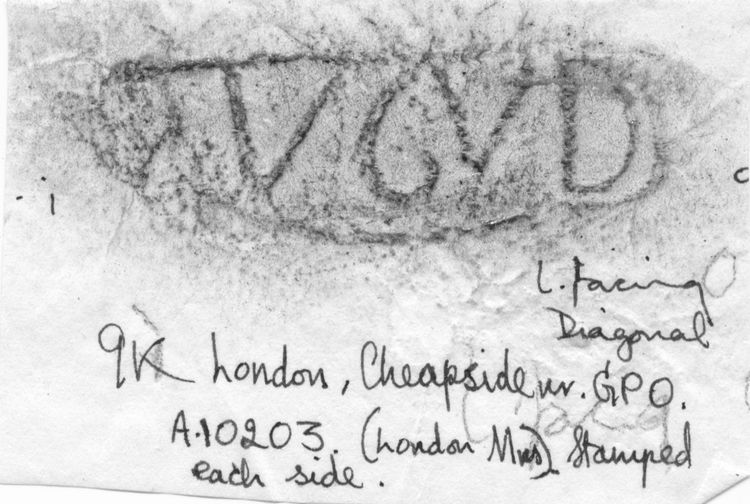 L. facing
Diagonal
9K London, Cheapside nr. GPO.
A.10203. (London Mus). Stamped
each side.